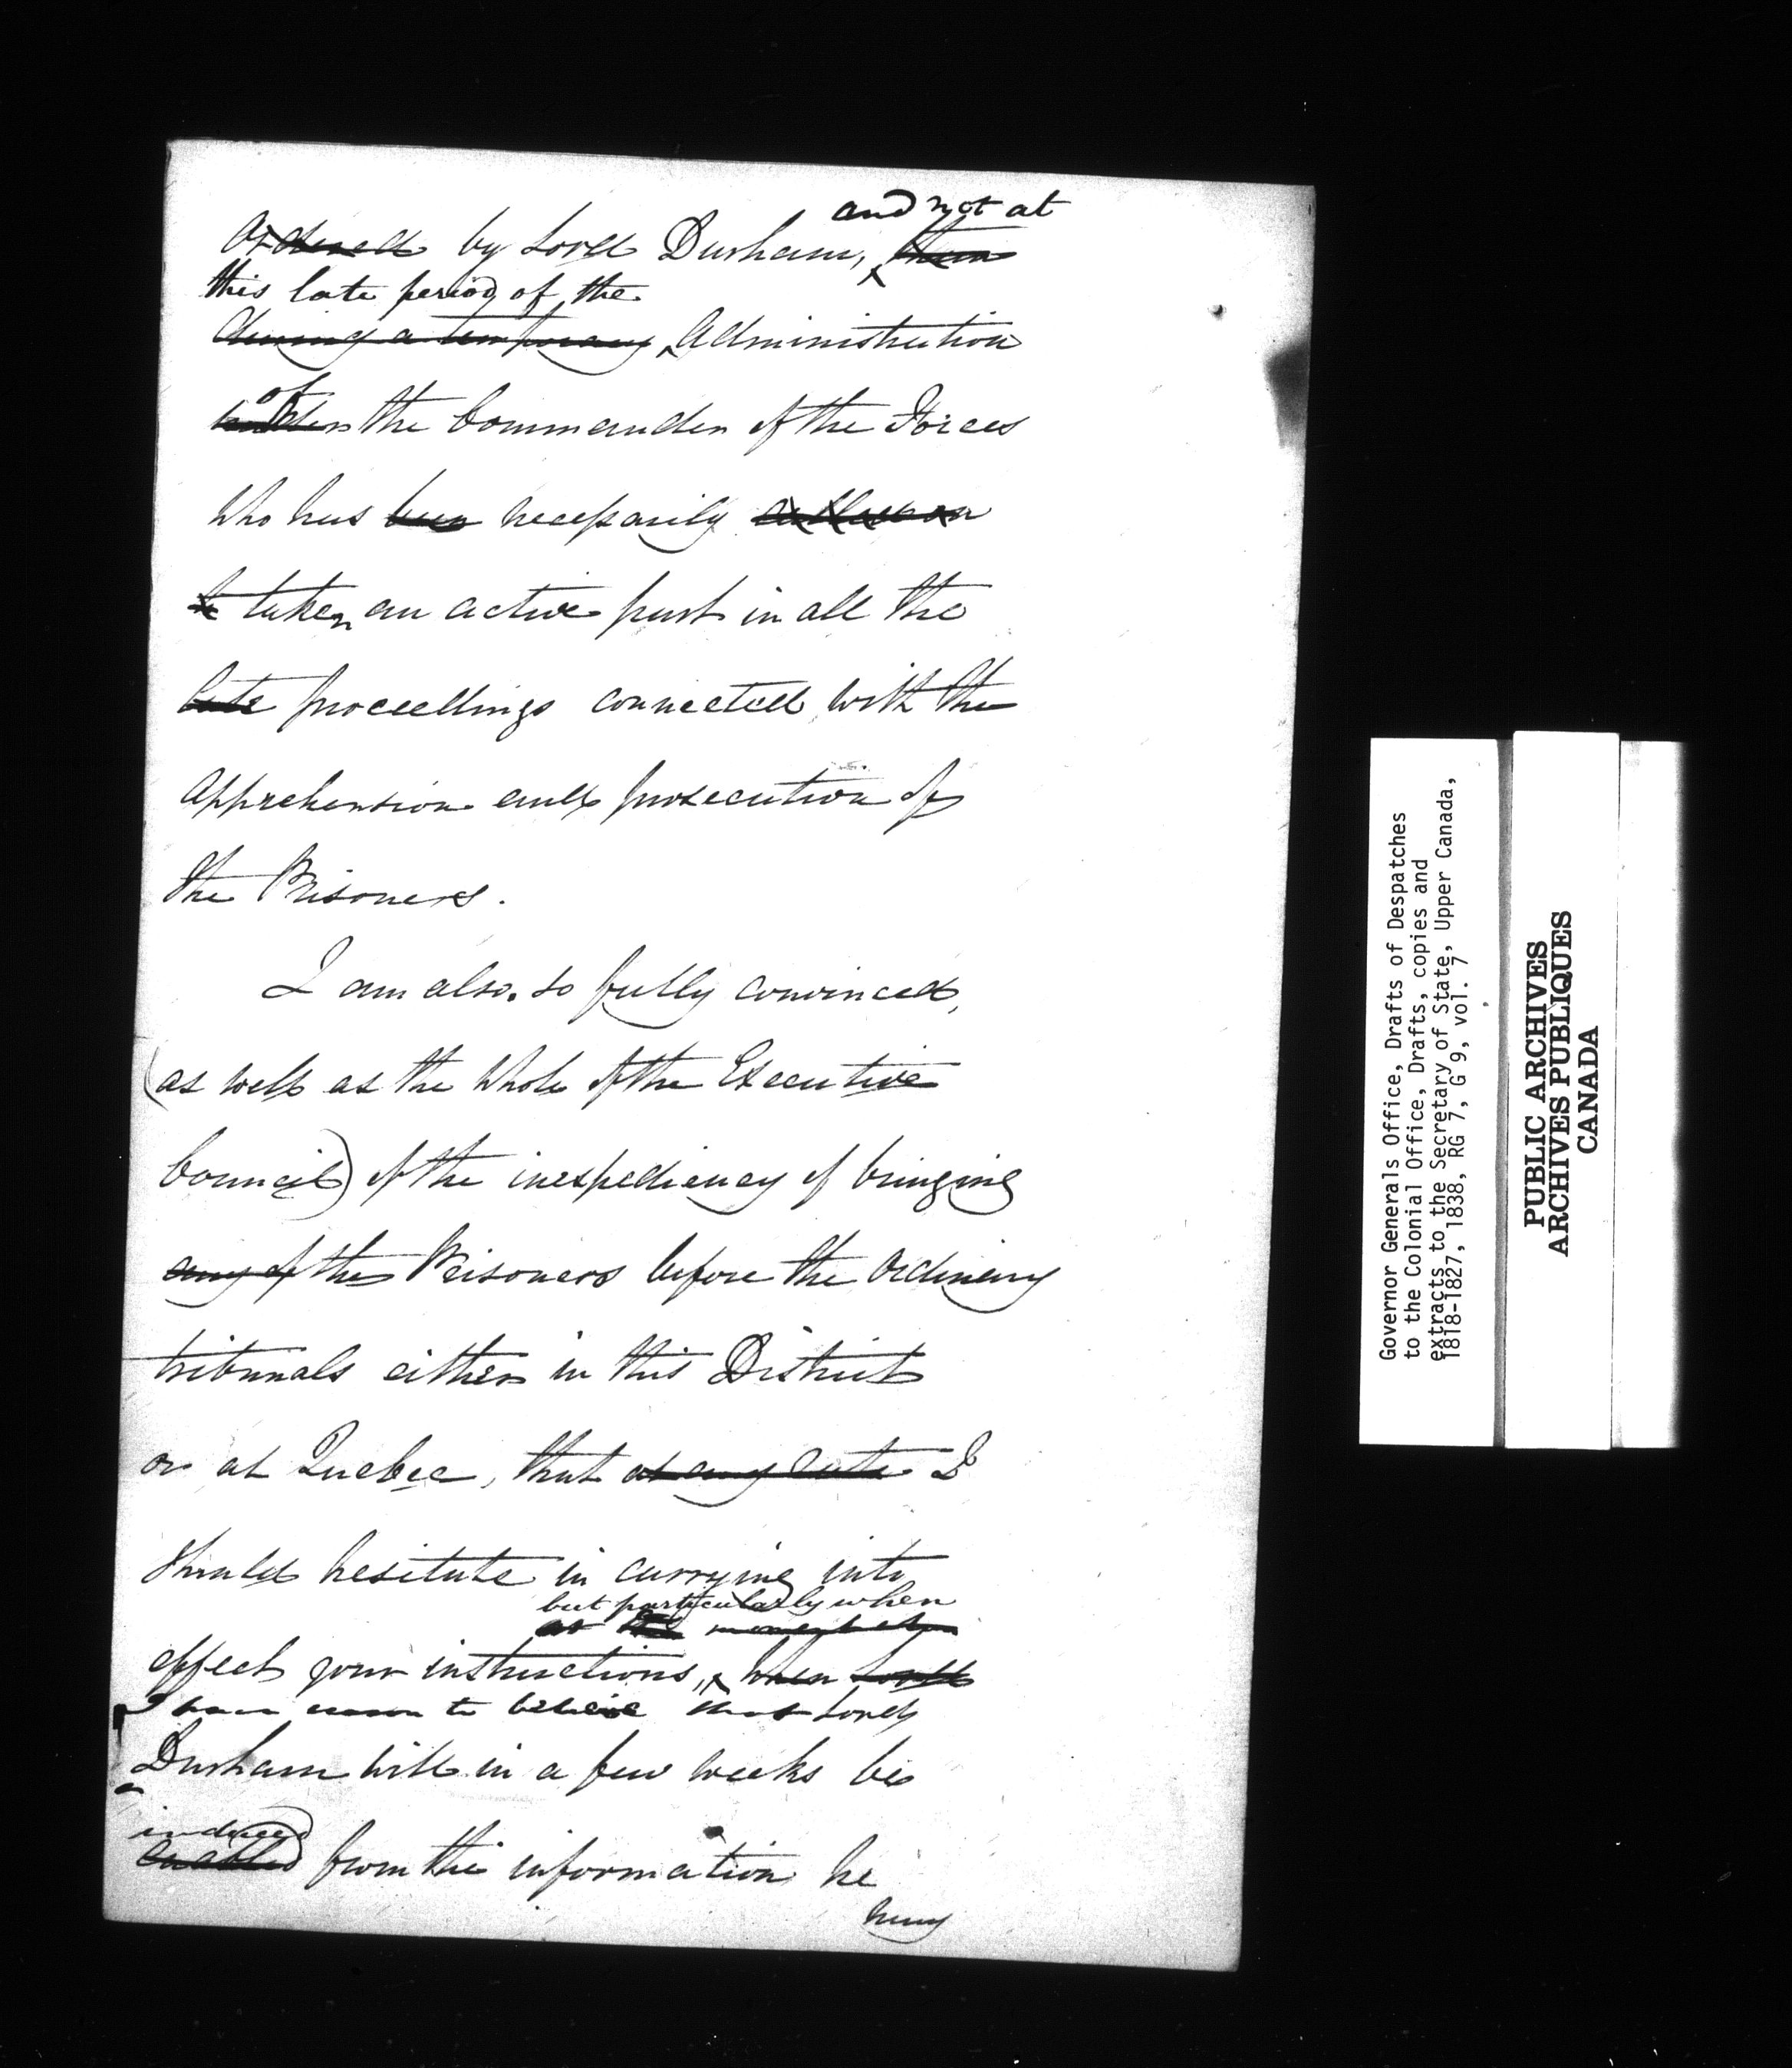 and not at
Ordered by Lord Durham, than
this late period of the
during a temporary Administration
of
under the Commander of the Forces
who has been necessarily called on
to taken an active part in all the
late proceedings connected with the
apprehension and prosecution of
the Prisoners.
I am also so fully convinced,
(as well as the whole of the Executive
Council) of the inexpediency of bringing
any of the Prisoners before the ordinary
tribunals either in this District
or at Quebec, that at any rate I
should hesitate in carrying into
but particularly when
at the moment when
effect your instructions, when Lord
I have reason to believe that Lord
Durham will in a few weeks be
induced
enabled from the information he
may
Governor Generals Office, Drafts of Despatches
to the Colonial Office, Drafts, copies and
extracts to the Secretary of State, Upper Canada,
1818-1827, 1838, RG 7, G 9, vol. 7
PUBLIC ARCHIVES
ARCHIVES PUBLIQUES
CANADA